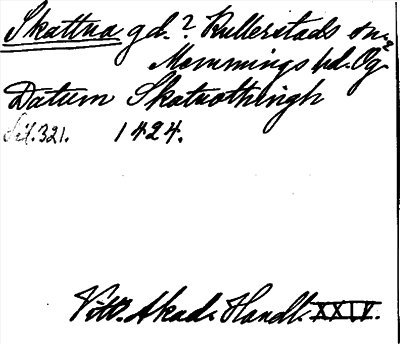 Skattna gd.? Kullerstads sn.
Memmings hd. Ög.
Datum Skatnothingh
Sid. 321. 1424.
Vitt. Akad. Handl. XXIV.